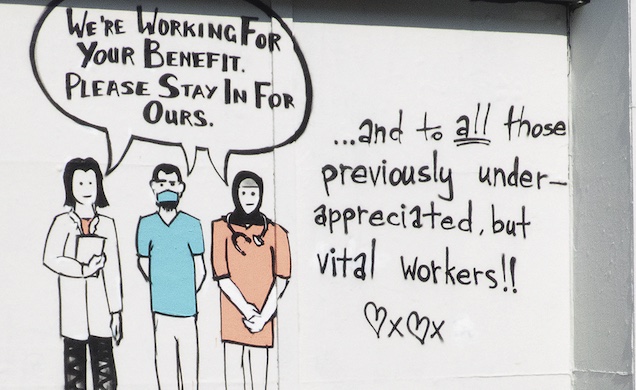 WE'RE WORKING FOR
YOUR BENEFIT.
PLEASE STAY IN FOR
OURS.
...and to all those
previously under-
appreciated, but
vital workers!!
♡x♡x